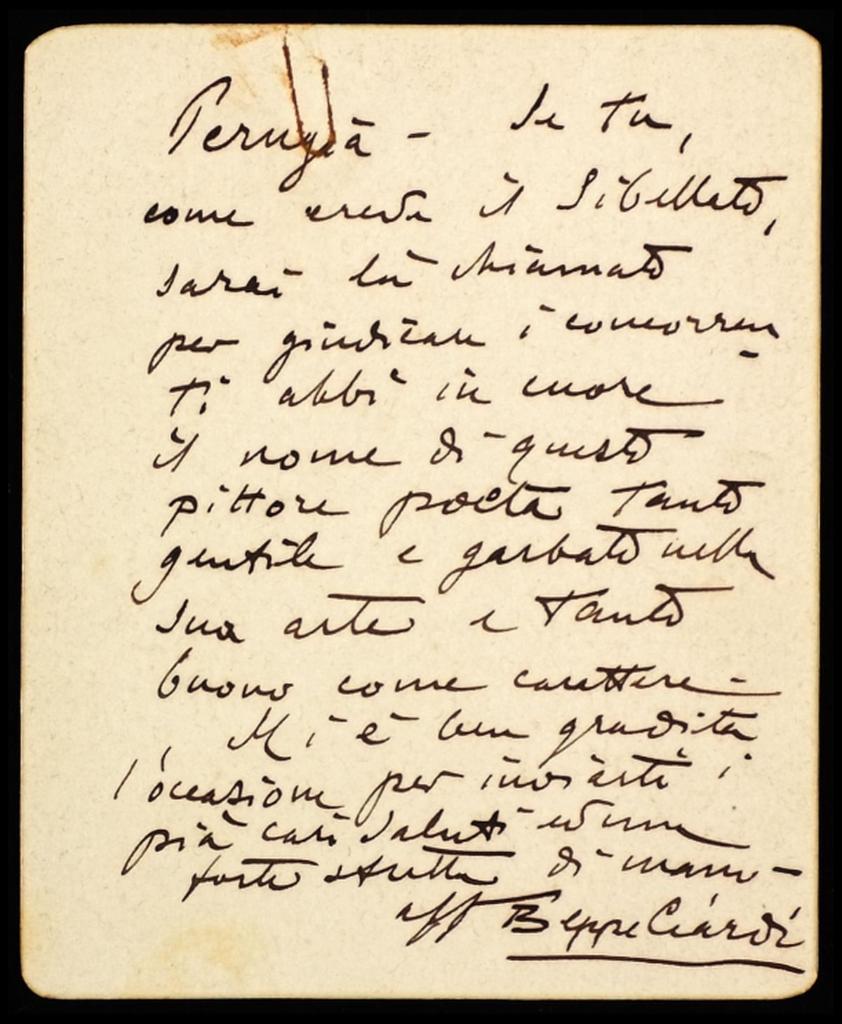 Perugia - Se tu,
come crede il Sibellato,
sarai là chiamato
per giudicare i concorren
ti abbi in cuore
il nome di questo
pittore poeta tanto
gentile e garbato nella
sua arte e tanto
buono come carattere -
Mi è ben gradita
l'occasione per inviarti i
più cari saluti ed una
forte stretta di mano -
aff Beppe Ciardi